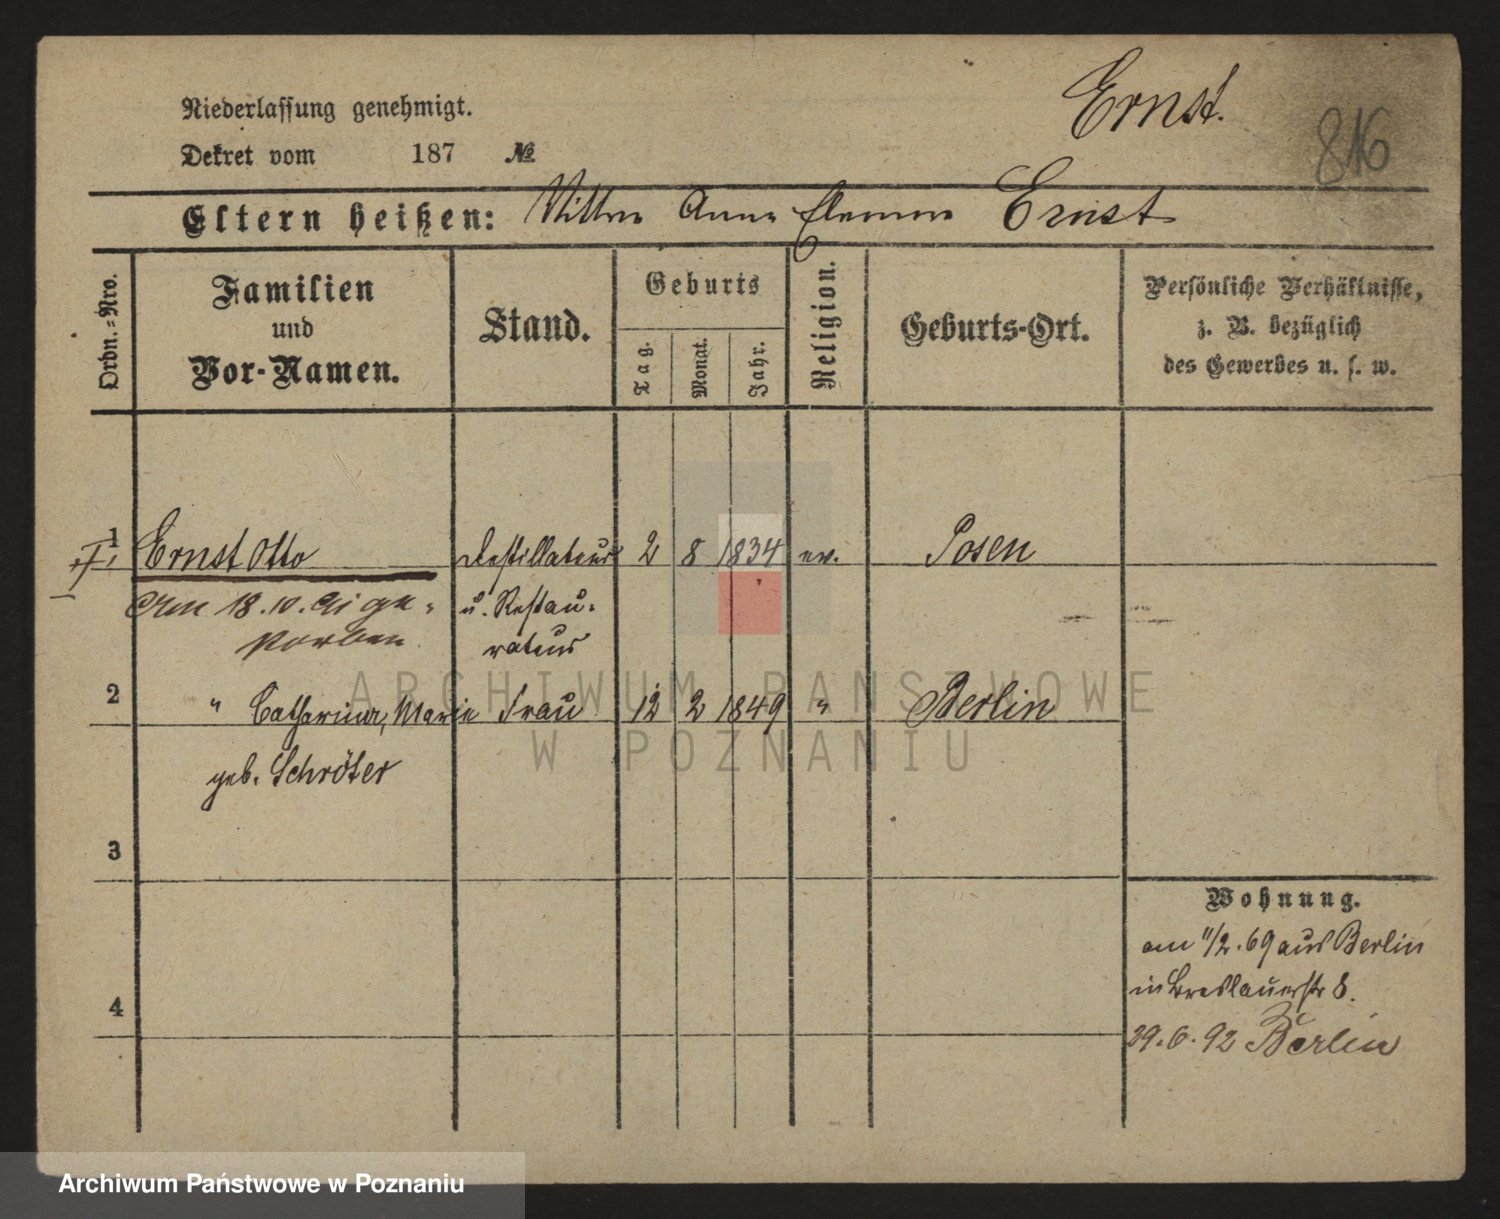 Ernst.
816
Niederlassung genehmigt.
Dekret vom 187 №
Eltern heißen: Anna Ernst
Ordn.-Nro.
Familien
und
Vor-Namen.
Stand.
Geburts
Tag.
Monat.
Jahr.
Religion.
Geburts-Ort.
Persönliche Verhältnisse,
z. B. bezüglich
des Gewerbes u. s. w.
1 Ernst Otto Destillateur 2 8 1834 ev. Posen
Am 18.10.91 ge-
storben
u. Restau-
rateur
2 " Catharina, Marie Frau 12 2 1849 " Berlin
geb. Schröter
3
4
Wohnung.
am 11/2.69 aus Berlin
in Breslauerstr 8.
29.6.92 Berlin
ARCHIWUM PAŃSTWOWE
W POZNANIU
Archiwum Państwowe w Poznaniu